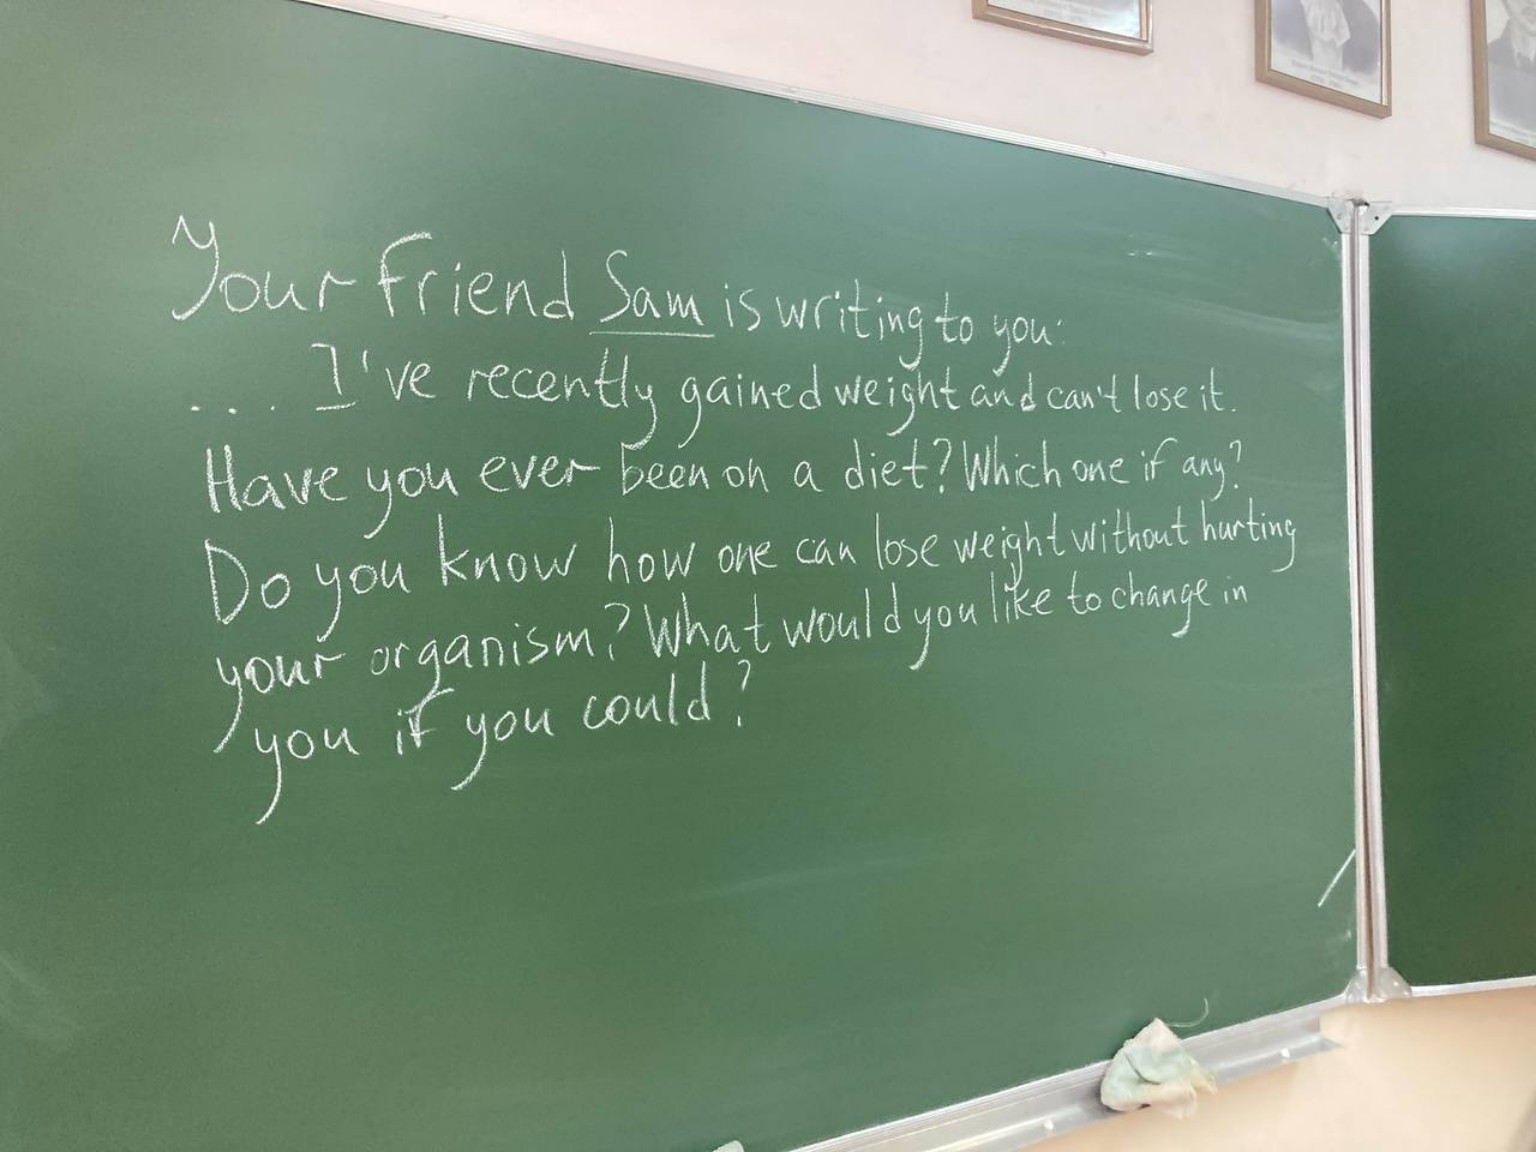 Your friend Sam is writing to you:
... I've recently gained weight and can't lose it.
Have you ever been on a diet? Which one if any?
Do you know how one can lose weight without hurting
your organism? What would you like to change in
you if you could?